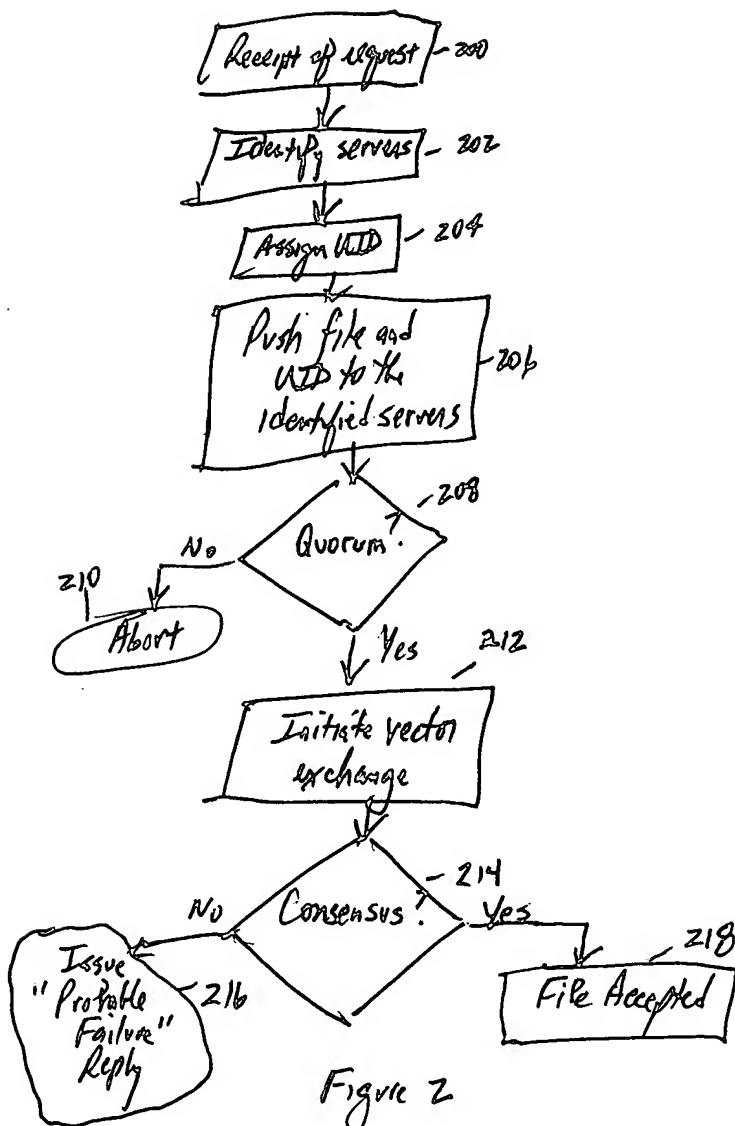 Receipt of request
200
Identify servers
202
Assign UID
204
Push file and
UID to the
identified servers
206
Quorum?
208
No
210
Abort
Yes
212
Initiate vector
exchange
Consensus?
214
No
Yes
Issue
"Probable
Failure"
Reply
216
218
File Accepted
Figure 2